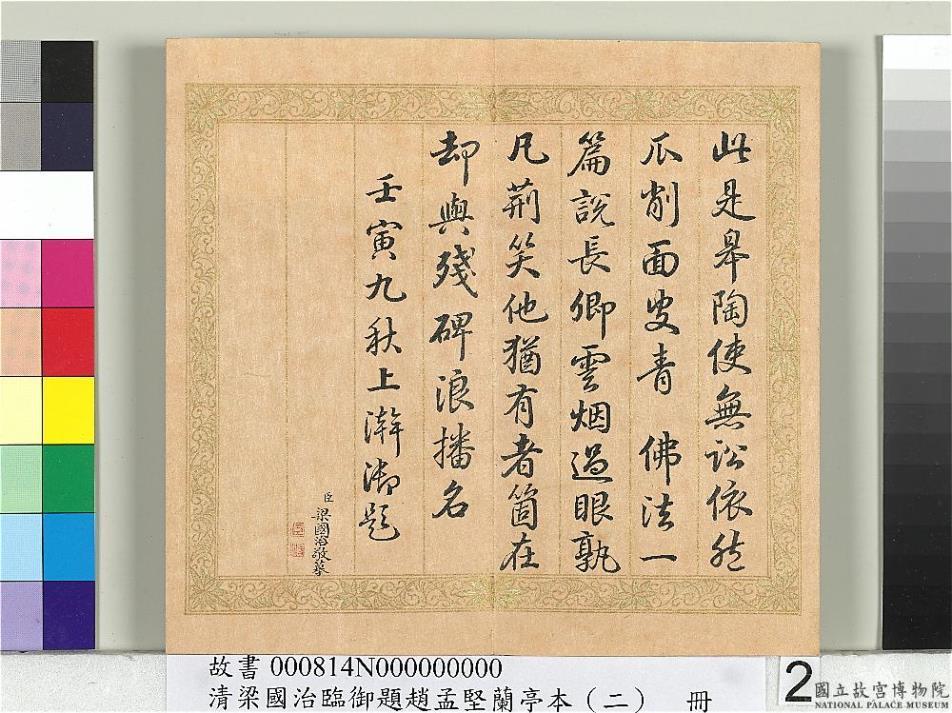 此是皋陶使無訟依然
瓜削面叟青 佛法一
篇說長卿雲烟過眼孰
凡荊笑他猶有者箇在
却與殘碑浪播名
壬寅九秋上澣御題
臣梁國治敬摹
故書 000814N000000000
清梁國治臨御題趙孟堅蘭亭本（二） 冊
2
國立故宮博物院
NATIONAL PALACE MUSEUM